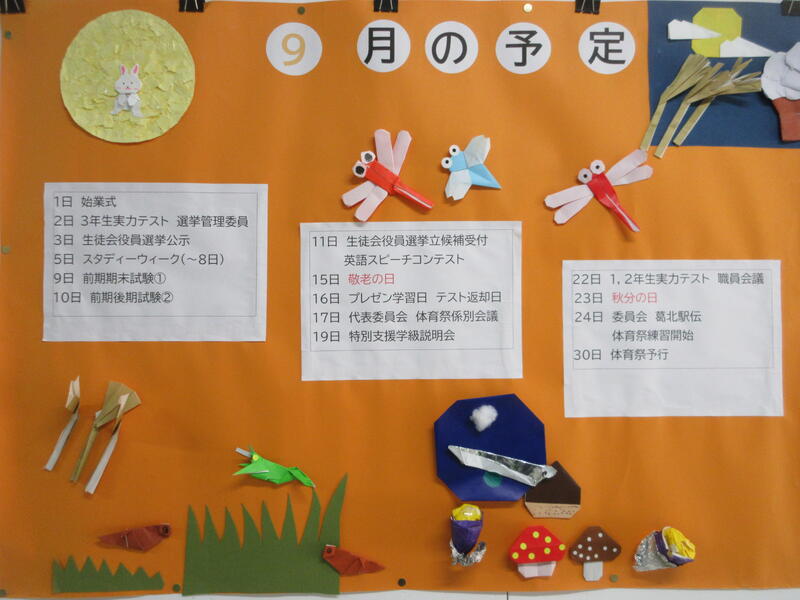 9月の予定
1日 始業式
2日 3年生実力テスト 選挙管理委員
3日 生徒会役員選挙公示
5日 スタディーウィーク(~8日)
9日 前期期末試験①
10日 前期後期試験②
11日 生徒会役員選挙立候補受付
英語スピーチコンテスト
15日 敬老の日
16日 プレゼン学習日 テスト返却日
17日 代表委員会 体育祭係別会議
19日 特別支援学級説明会
22日 1,2年生実力テスト 職員会議
23日 秋分の日
24日 委員会 葛北駅伝
体育祭練習開始
30日 体育祭予行